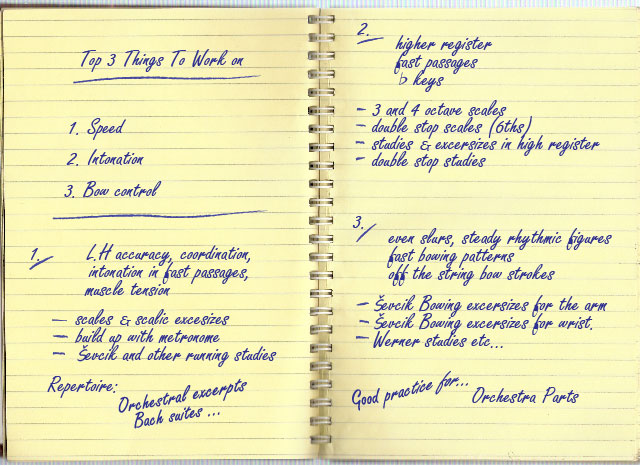 Top 3 Things To Work on
1. Speed
2. Intonation
3. Bow control
1. L.H accuracy, coordination,
intonation in fast passages,
muscle tension
— scales & scalic excesizes
— build up with metronome
— Ševcik and other running studies
Repertoire:
Orchestral excerpts
Bach suites ...
2.
higher register
fast passages
♭ keys
— 3 and 4 octave scales
— double stop scales (6ths)
— studies & excersizes in high register
— double stop studies
3.
even slurs, steady rhythmic figures
fast bowing patterns
off the string bow strokes
— Ševcik Bowing excersizes for the arm
— Ševcik Bowing excersizes for wrist.
— Werner studies etc...
Good practice for...
Orchestra Parts